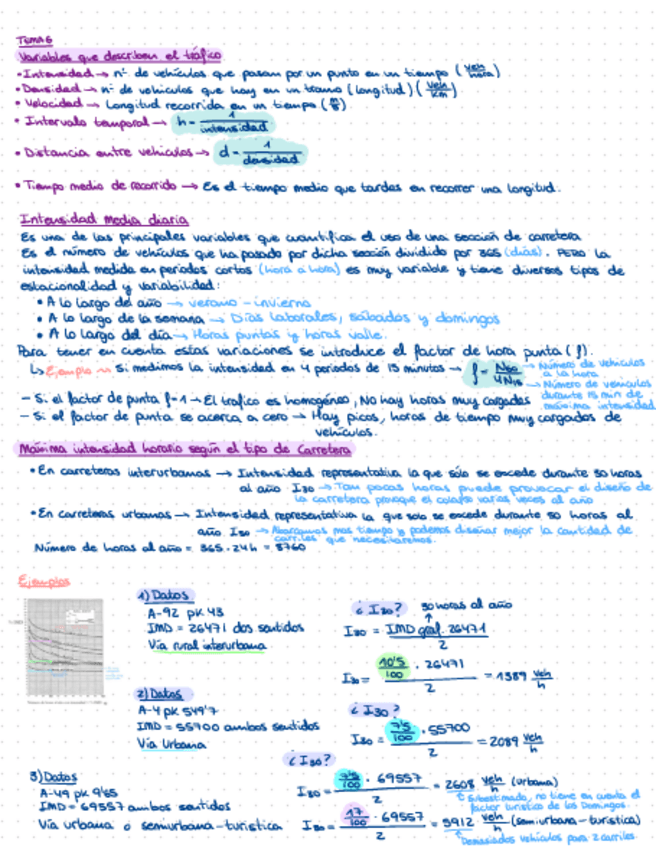 TEMA 6
Variables que describen el tráfico
• Intensidad → nº de vehículos que pasan por un punto en un tiempo (veh/hora)
• Densidad → nº de vehículos que hay en un tramo (longitud) (veh/km)
• Velocidad → Longitud recorrida en un tiempo
• Intervalo temporal → h = 1/intensidad
• Distancia entre vehículos → d = 1/densidad
• Tiempo medio de recorrido → Es el tiempo medio que tardas en recorrer una longitud.
Intensidad media diaria
Es una de las principales variables que cuantifica el uso de una sección de carretera
Es el número de vehículos que ha pasado por dicha sección dividido por 365 (días). PERO la
intensidad medida en periodos cortos (hora a hora) es muy variable y tiene diversos tipos de
estacionalidad y variabilidad:
• A lo largo del año → verano - invierno
• A lo largo de la semana → Días laborales, sábados y domingos
• A lo largo del día → Horas puntas y horas valle.
Para tener en cuenta estas variaciones se introduce el factor de hora punta (f).
↳ Ejemplo → Si medimos la intensidad en 4 periodos de 15 minutos → f = N60/4N15 → Número de vehículos
a la hora
→ Número de vehículos
durante 15 min de
máxima intensidad
- Si el factor de punta f=1 → El tráfico es homogéneo, No hay horas muy cargadas
- Si el factor de punta se acerca a cero → Hay picos, horas de tiempo muy cargadas de
vehículos.
Máxima intensidad horario según el tipo de Carretera
• En carreteras interurbanas → Intensidad representativa la que sólo se excede durante 30 horas
al año I30 → Tan pocas horas puede provocar el diseño de
la carretera provoque el colapso varias veces al año
• En carreteras urbanas → Intensidad representativa la que solo se excede durante 50 horas al
año I50 → Abarcamos mas tiempo y podemos diseñar mejor la cantidad de
carriles que necesitaremos.
Número de horas al año = 365 · 24h = 8760
Ejemplos
1) Datos
A-92 pk 43
IMD = 26471 dos sentidos
Vía rural interurbana
¿I30? 30 horas al año
I30 = IMD graf. 26471 / 2
I30 = 10'5/100 · 26471 / 2 = 1389 veh/h
2) Datos
A-4 pk 549'7
IMD = 55700 ambos sentidos
Vía Urbana
¿I30?
I30 = 7'5/100 · 55700 / 2 = 2089 veh/h
3) Datos
A-49 pk 9'65
IMD = 69557 ambos sentidos
Vía urbana o semiurbana-turística
¿I30?
I30 = 7'5/100 · 69557 / 2 = 2608 veh/h (urbana)
Subestimado, no tiene en cuenta el
factor turístico de los Domingos.
I30 = 17/100 · 69557 / 2 = 5912 veh/h (semiurbana-turística)
Demasiados vehículos para 2 carriles.